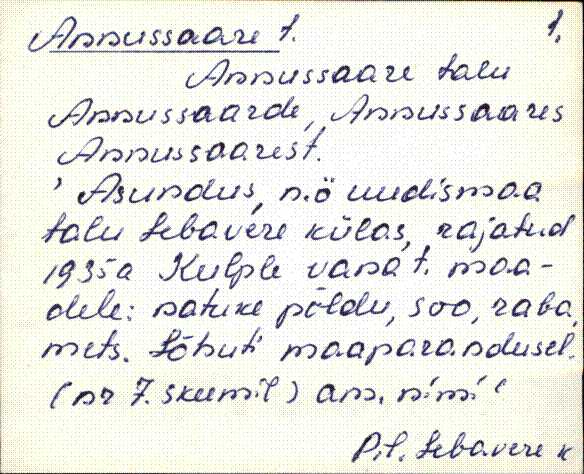 Annussaare t.
1.
Annussaare talu
Annussaarde, Annussaares
Annussaarest.
' Asundus, n.ö uudismaa
talu Lebavere külas, rajatud
1935a Kulple vana t. maa-
dele: natuke põldu, soo, raba,
mets. Lõhuti maaparandusel.
(nr 7. skeemil) am. nimi '
P.t. Lebavere k